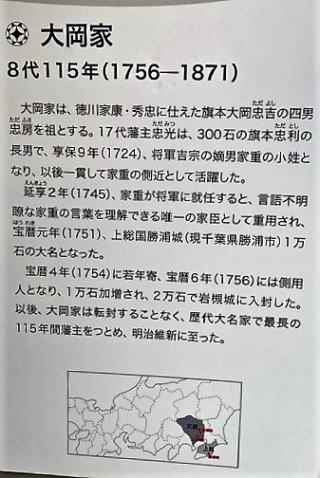 大岡家
8代115年(1756―1871)
大岡家は、徳川家康・秀忠に仕えた旗本大岡忠吉の四男
忠房を祖とする。17代藩主忠光は、300石の旗本忠利の
長男で、享保9年(1724)、将軍吉宗の嫡男家重の小姓と
なり、以後一貫して家重の側近として活躍した。
延享2年(1745)、家重が将軍に就任すると、言語不明
瞭な家重の言葉を理解できる唯一の家臣として重用され、
宝暦元年(1751)、上総国勝浦城(現千葉県勝浦市)1万
石の大名となった。
宝暦4年(1754)に若年寄、宝暦6年(1756)には側用
人となり、1万石加増され、2万石で岩槻城に入封した。
以後、大岡家は転封することなく、歴代大名家で最長の
115年間藩主をつとめ、明治維新に至った。
武蔵
上総